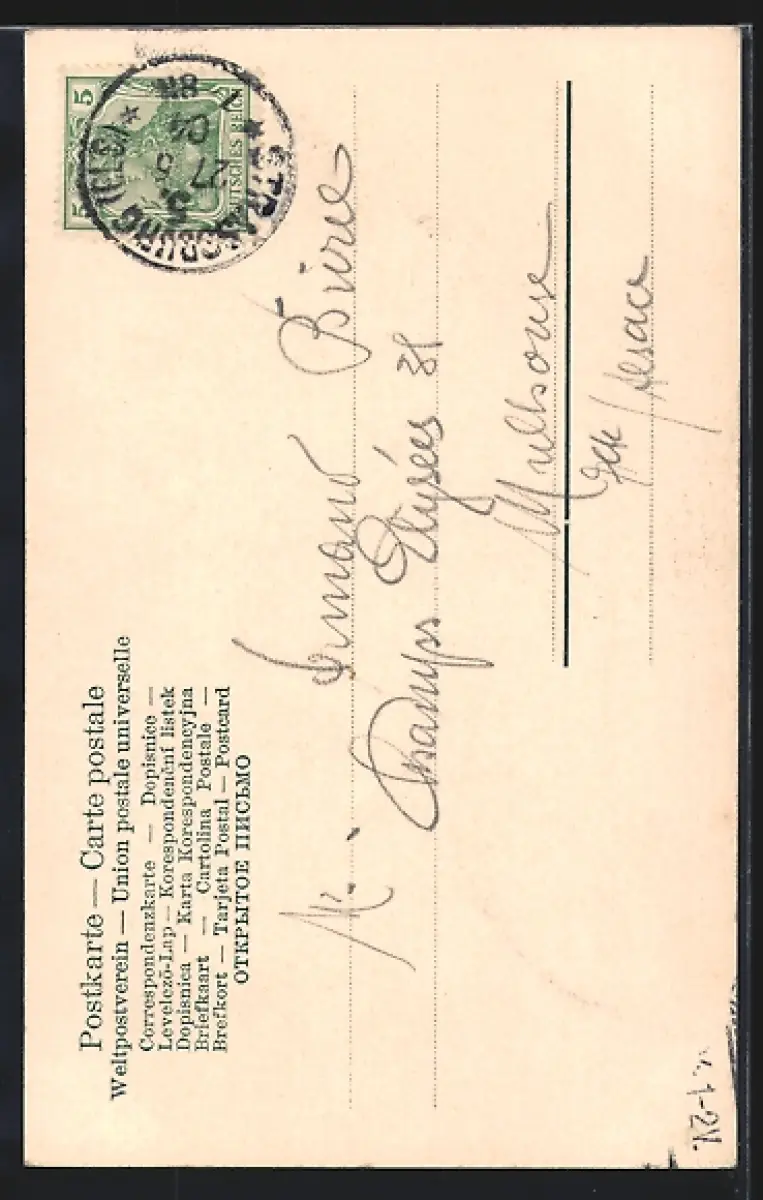 Postkarte — Carte postale
Weltpostverein — Union postale universelle
Correspondenzkarte — Dopisnice —
Levelező-Lap — Korespondenční lístek
Dopisnica — Karta Korespondencyjna
Briefkaart — Cartolina Postale —
Brefkort — Tarjeta Postal — Postcard
ОТКРЫТОЕ ПИСЬМО
5 5
DEUTSCHES REICH
* STRASSBURG (ELS) *
5.
27 5
04
7 8N
M. Armand
Champs Elysées 31
Mulhouse
Alsace